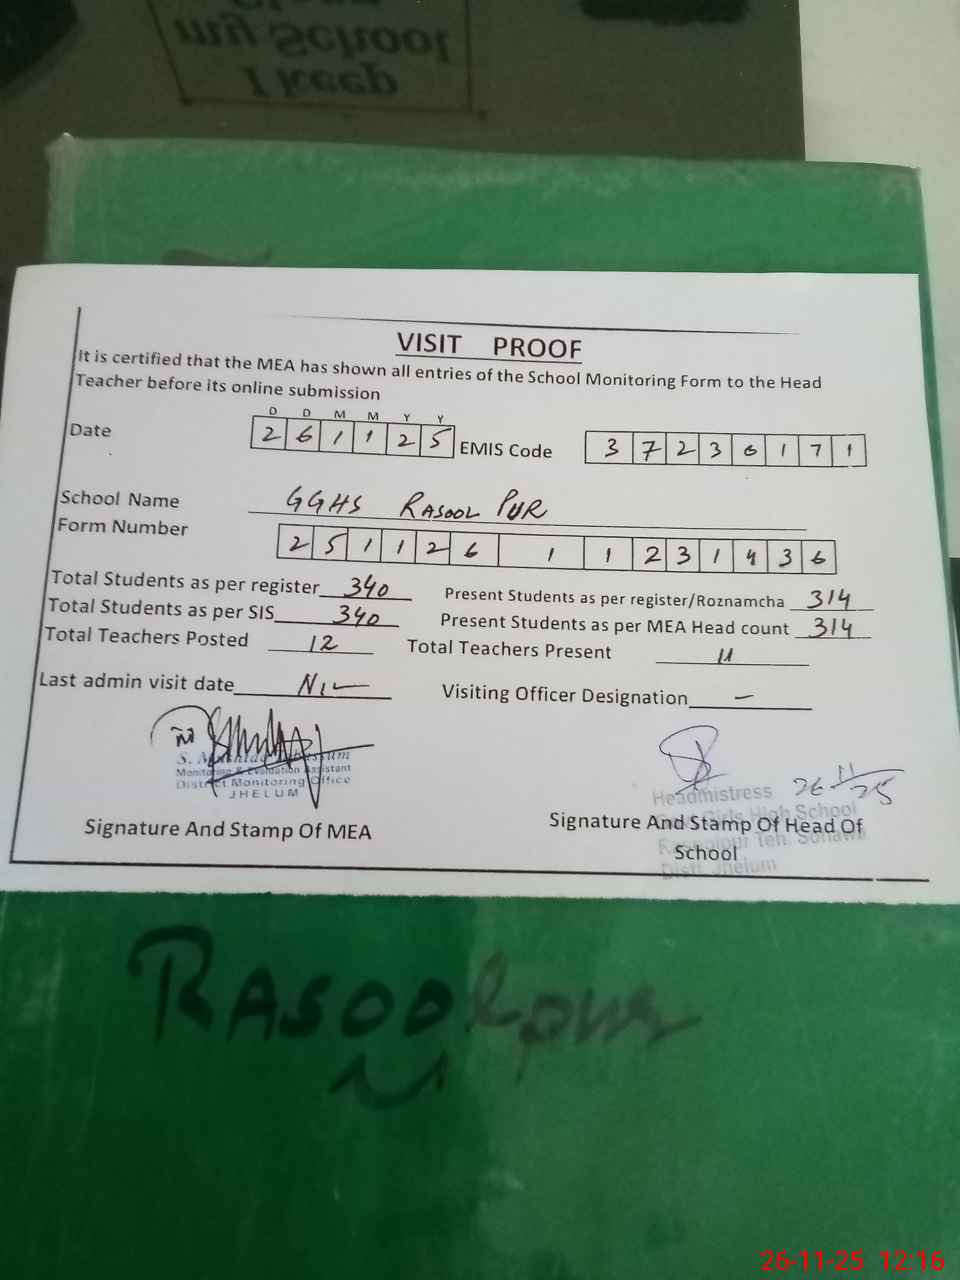 I keep
my School
VISIT PROOF
It is certified that the MEA has shown all entries of the School Monitoring Form to the Head
Teacher before its online submission
D D M M Y Y
Date 2 6 1 1 2 5 EMIS Code 3 7 2 3 6 1 7 1
School Name GGHS RASOOL PUR
Form Number 2 5 1 1 2 6 1 1 2 3 1 4 3 6
Total Students as per register 340 Present Students as per register/Roznamcha 314
Total Students as per SIS 340 Present Students as per MEA Head count 314
Total Teachers Posted 12 Total Teachers Present 11
Last admin visit date Nil Visiting Officer Designation –
Monitoring & Evaluation Assistant
District Monitoring Office
JHELUM
Signature And Stamp Of MEA
26 11 25
Headmistress
Girls High School
Signature And Stamp Of Head Of
School
Distt Jhelum
RASOOLpur
26-11-25 12:16